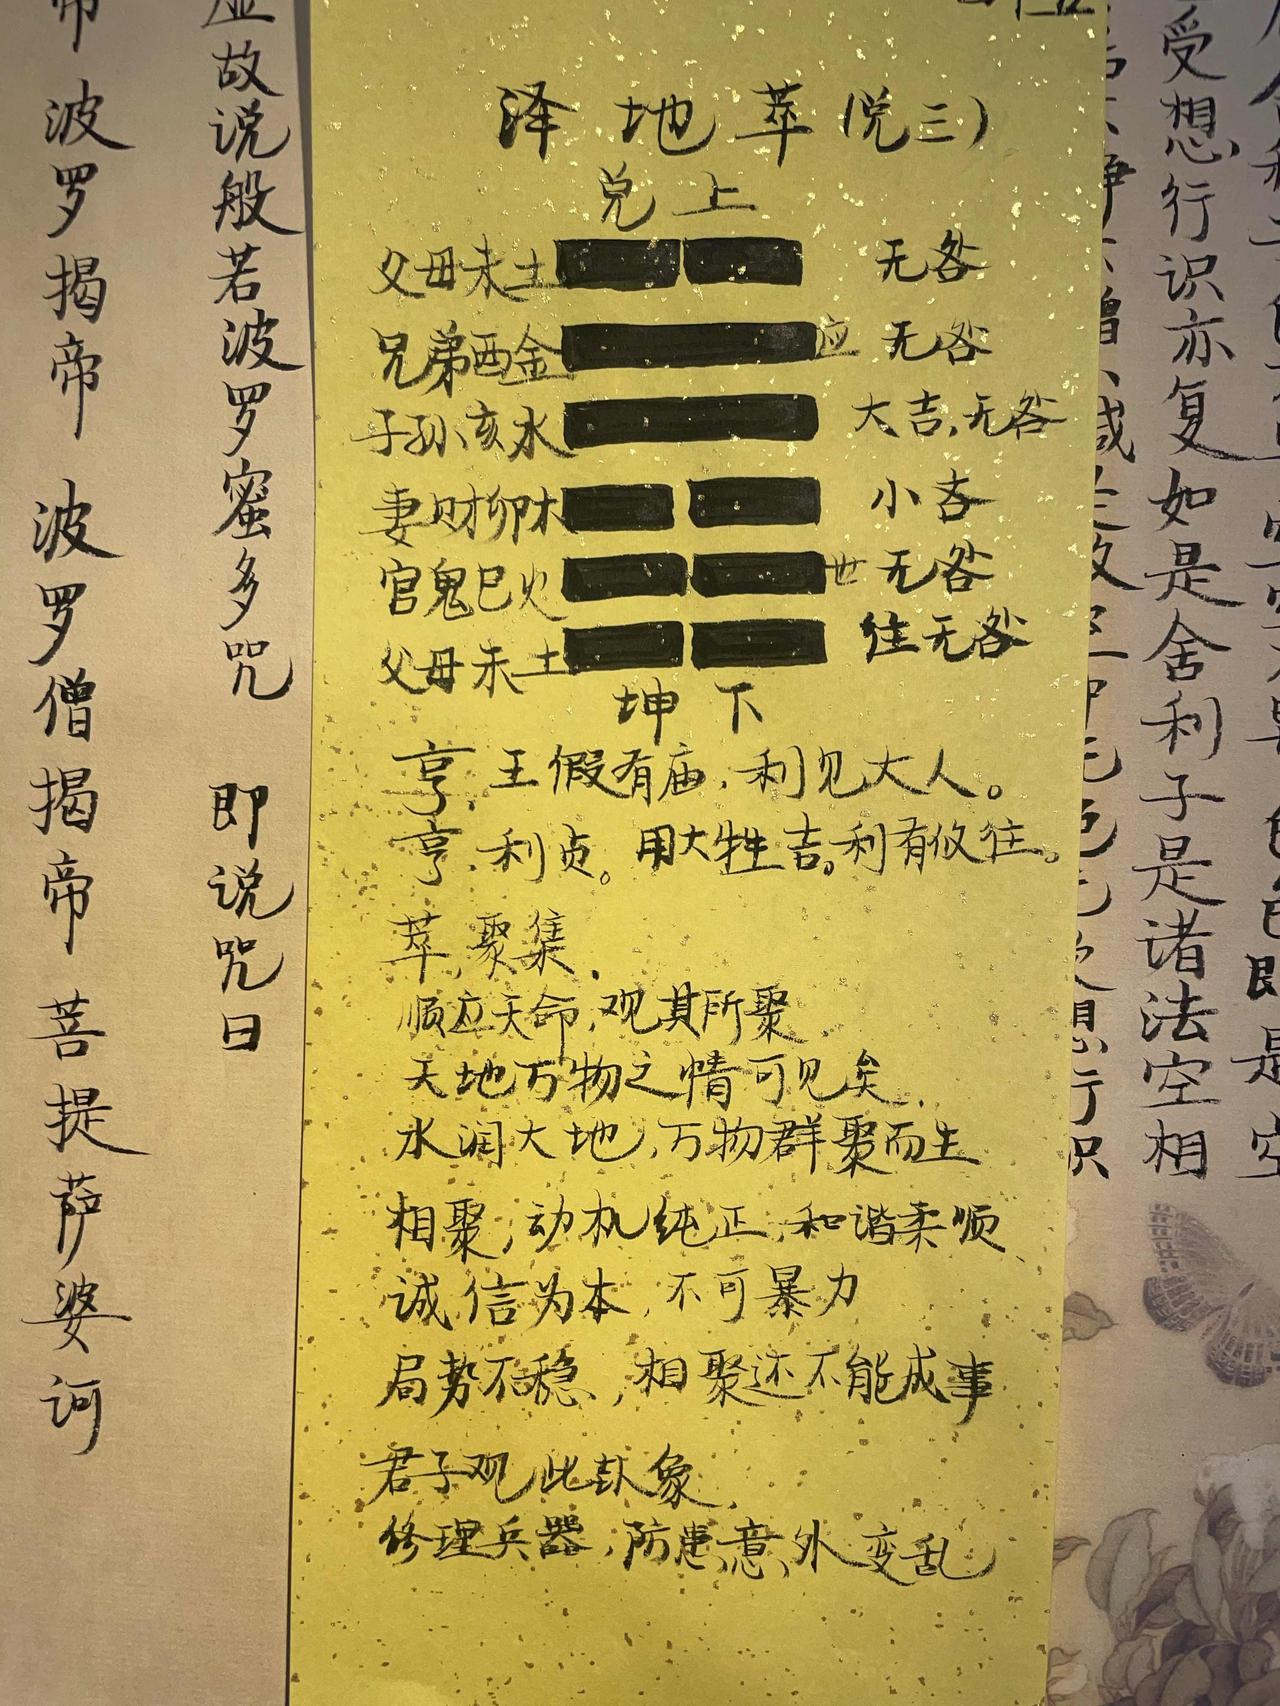 泽地萃(兑三)
兑上
父母未土 无咎
兄弟酉金 应 无咎
子孙亥水 大吉,无咎
妻财卯木 小吝
官鬼巳火 世 无咎
父母未土 往无咎
坤下
亨,王假有庙,利见大人。
亨,利贞。用大牲吉。利有攸往。
萃,聚集.
顺应天命,观其所聚
天地万物之情可见矣.
水润大地,万物群聚而生
相聚,动机纯正,和谐柔顺
诚信为本,不可暴力
局势不稳,相聚还不能成事
君子观此卦象,
修理兵器,防患意外变乱
受想行识亦复如是舍利子是诸法空相
故说般若波罗蜜多咒 即说咒曰
帝 波罗揭帝 波罗僧揭帝 菩提萨婆诃